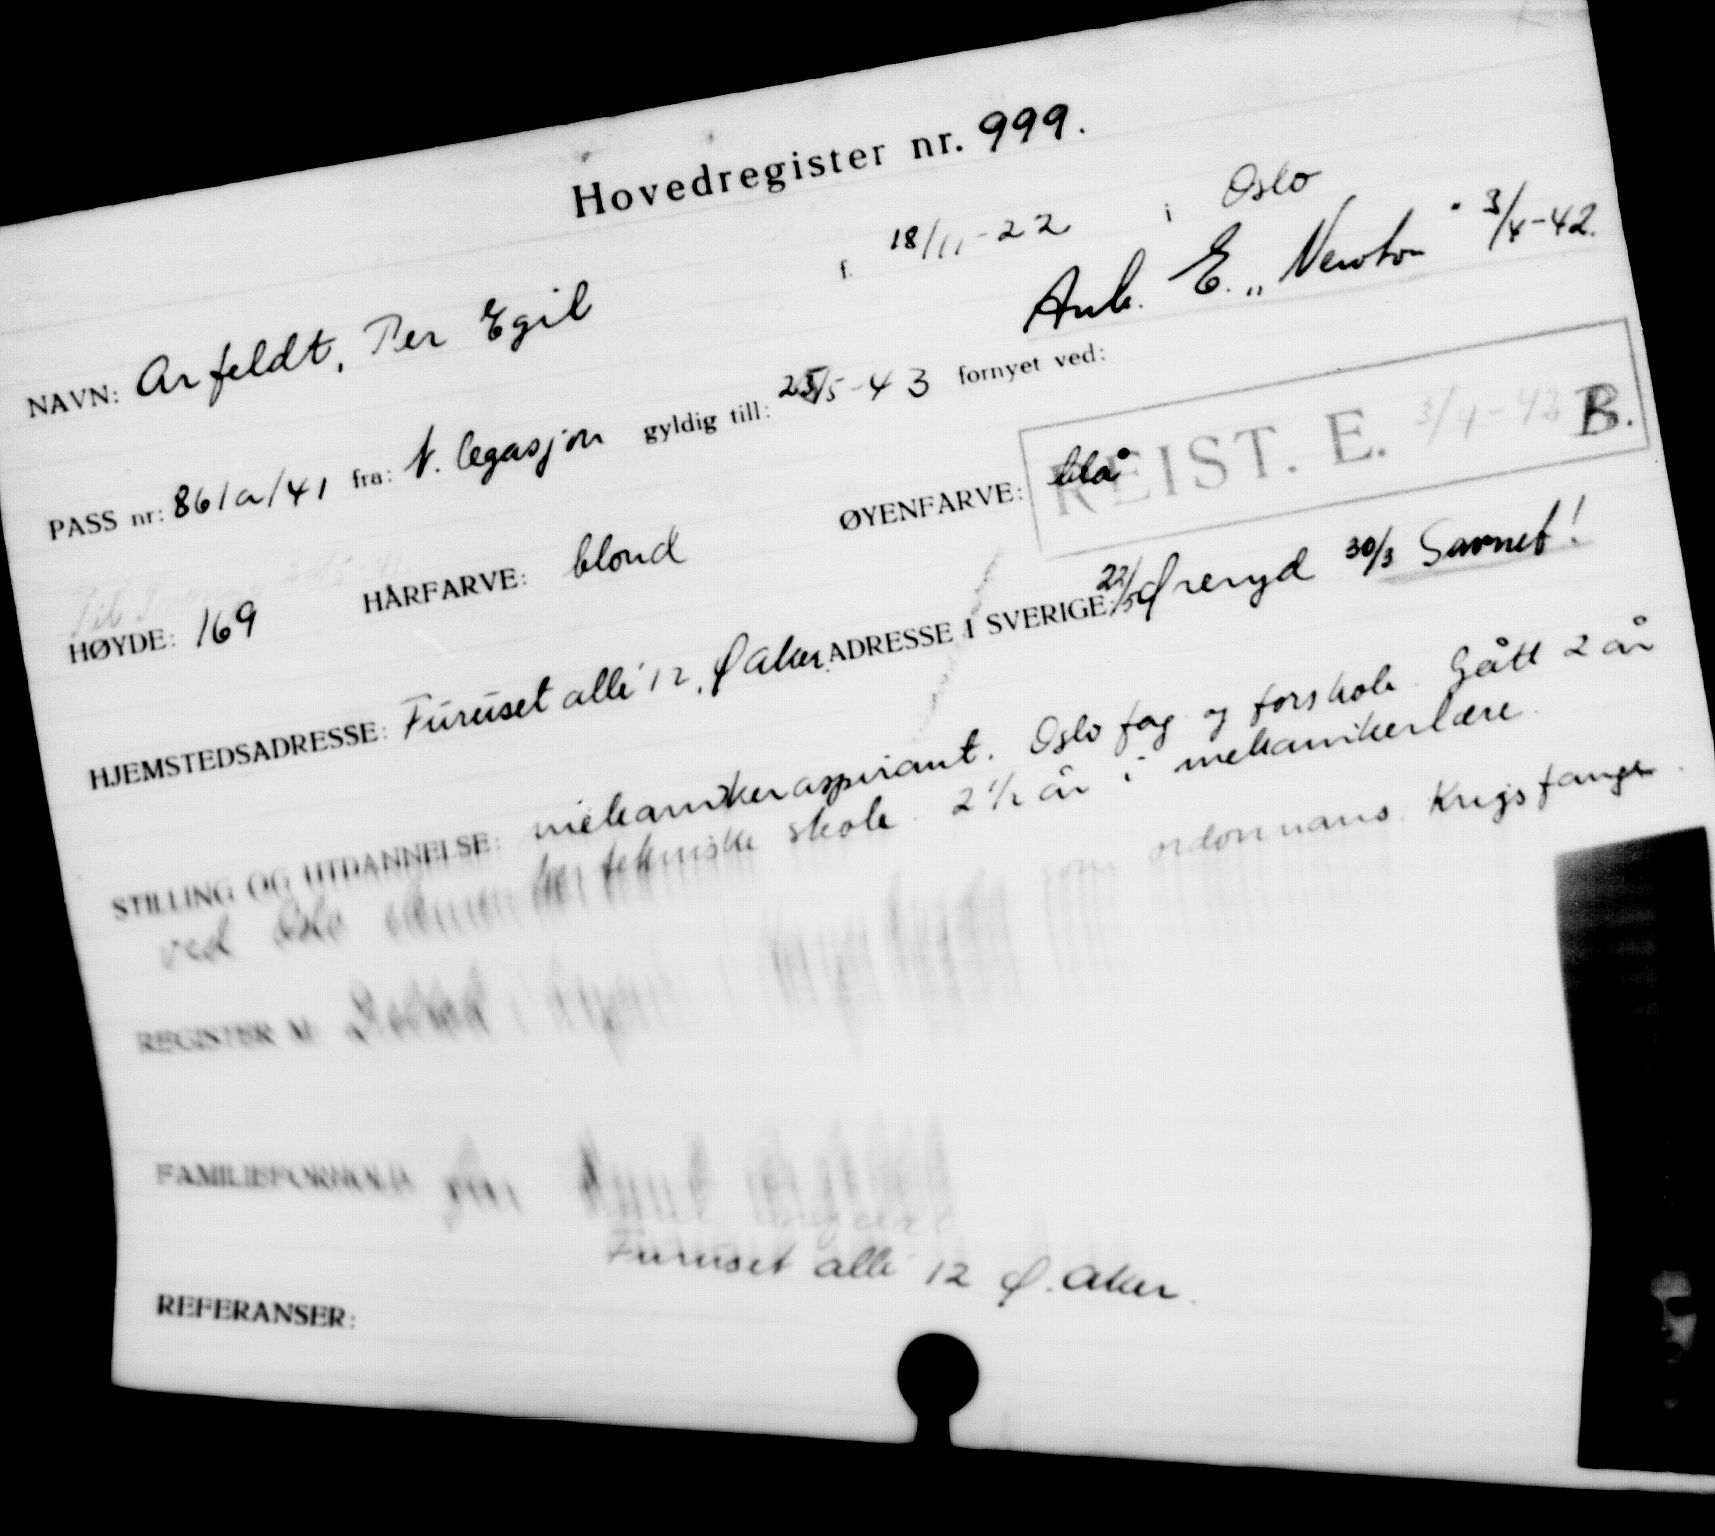 Hovedregister nr. 999.
NAVN: Arfeldt, Per Egil f. 18/11-22 i Oslo
Ank. E. „Newton" 3/4-42.
PASS nr: 861a/41 fra: N. legasjon gyldig till: 25/5-43 fornyet ved:
REIST. E. 3/4-42 B.
HØYDE: 169 HÅRFARVE: blond ØYENFARVE: blå
HJEMSTEDSADRESSE: Furuset allé 12, Ø Aker. ADRESSE I SVERIGE: 22/5 Øreryd 30/3 Savnet!
STILLING OG UTDANNELSE: mekanikeraspirant. Oslo fag og forskole. Gått 2 år
ved Oslo tekniske skole. 2 1/2 år i mekanikerlære.
REGISTER M: som ordonnans. Krigsfange.
FAMILIEFORHOLD
Furuset allé 12 Ø. Aker.
REFERANSER: